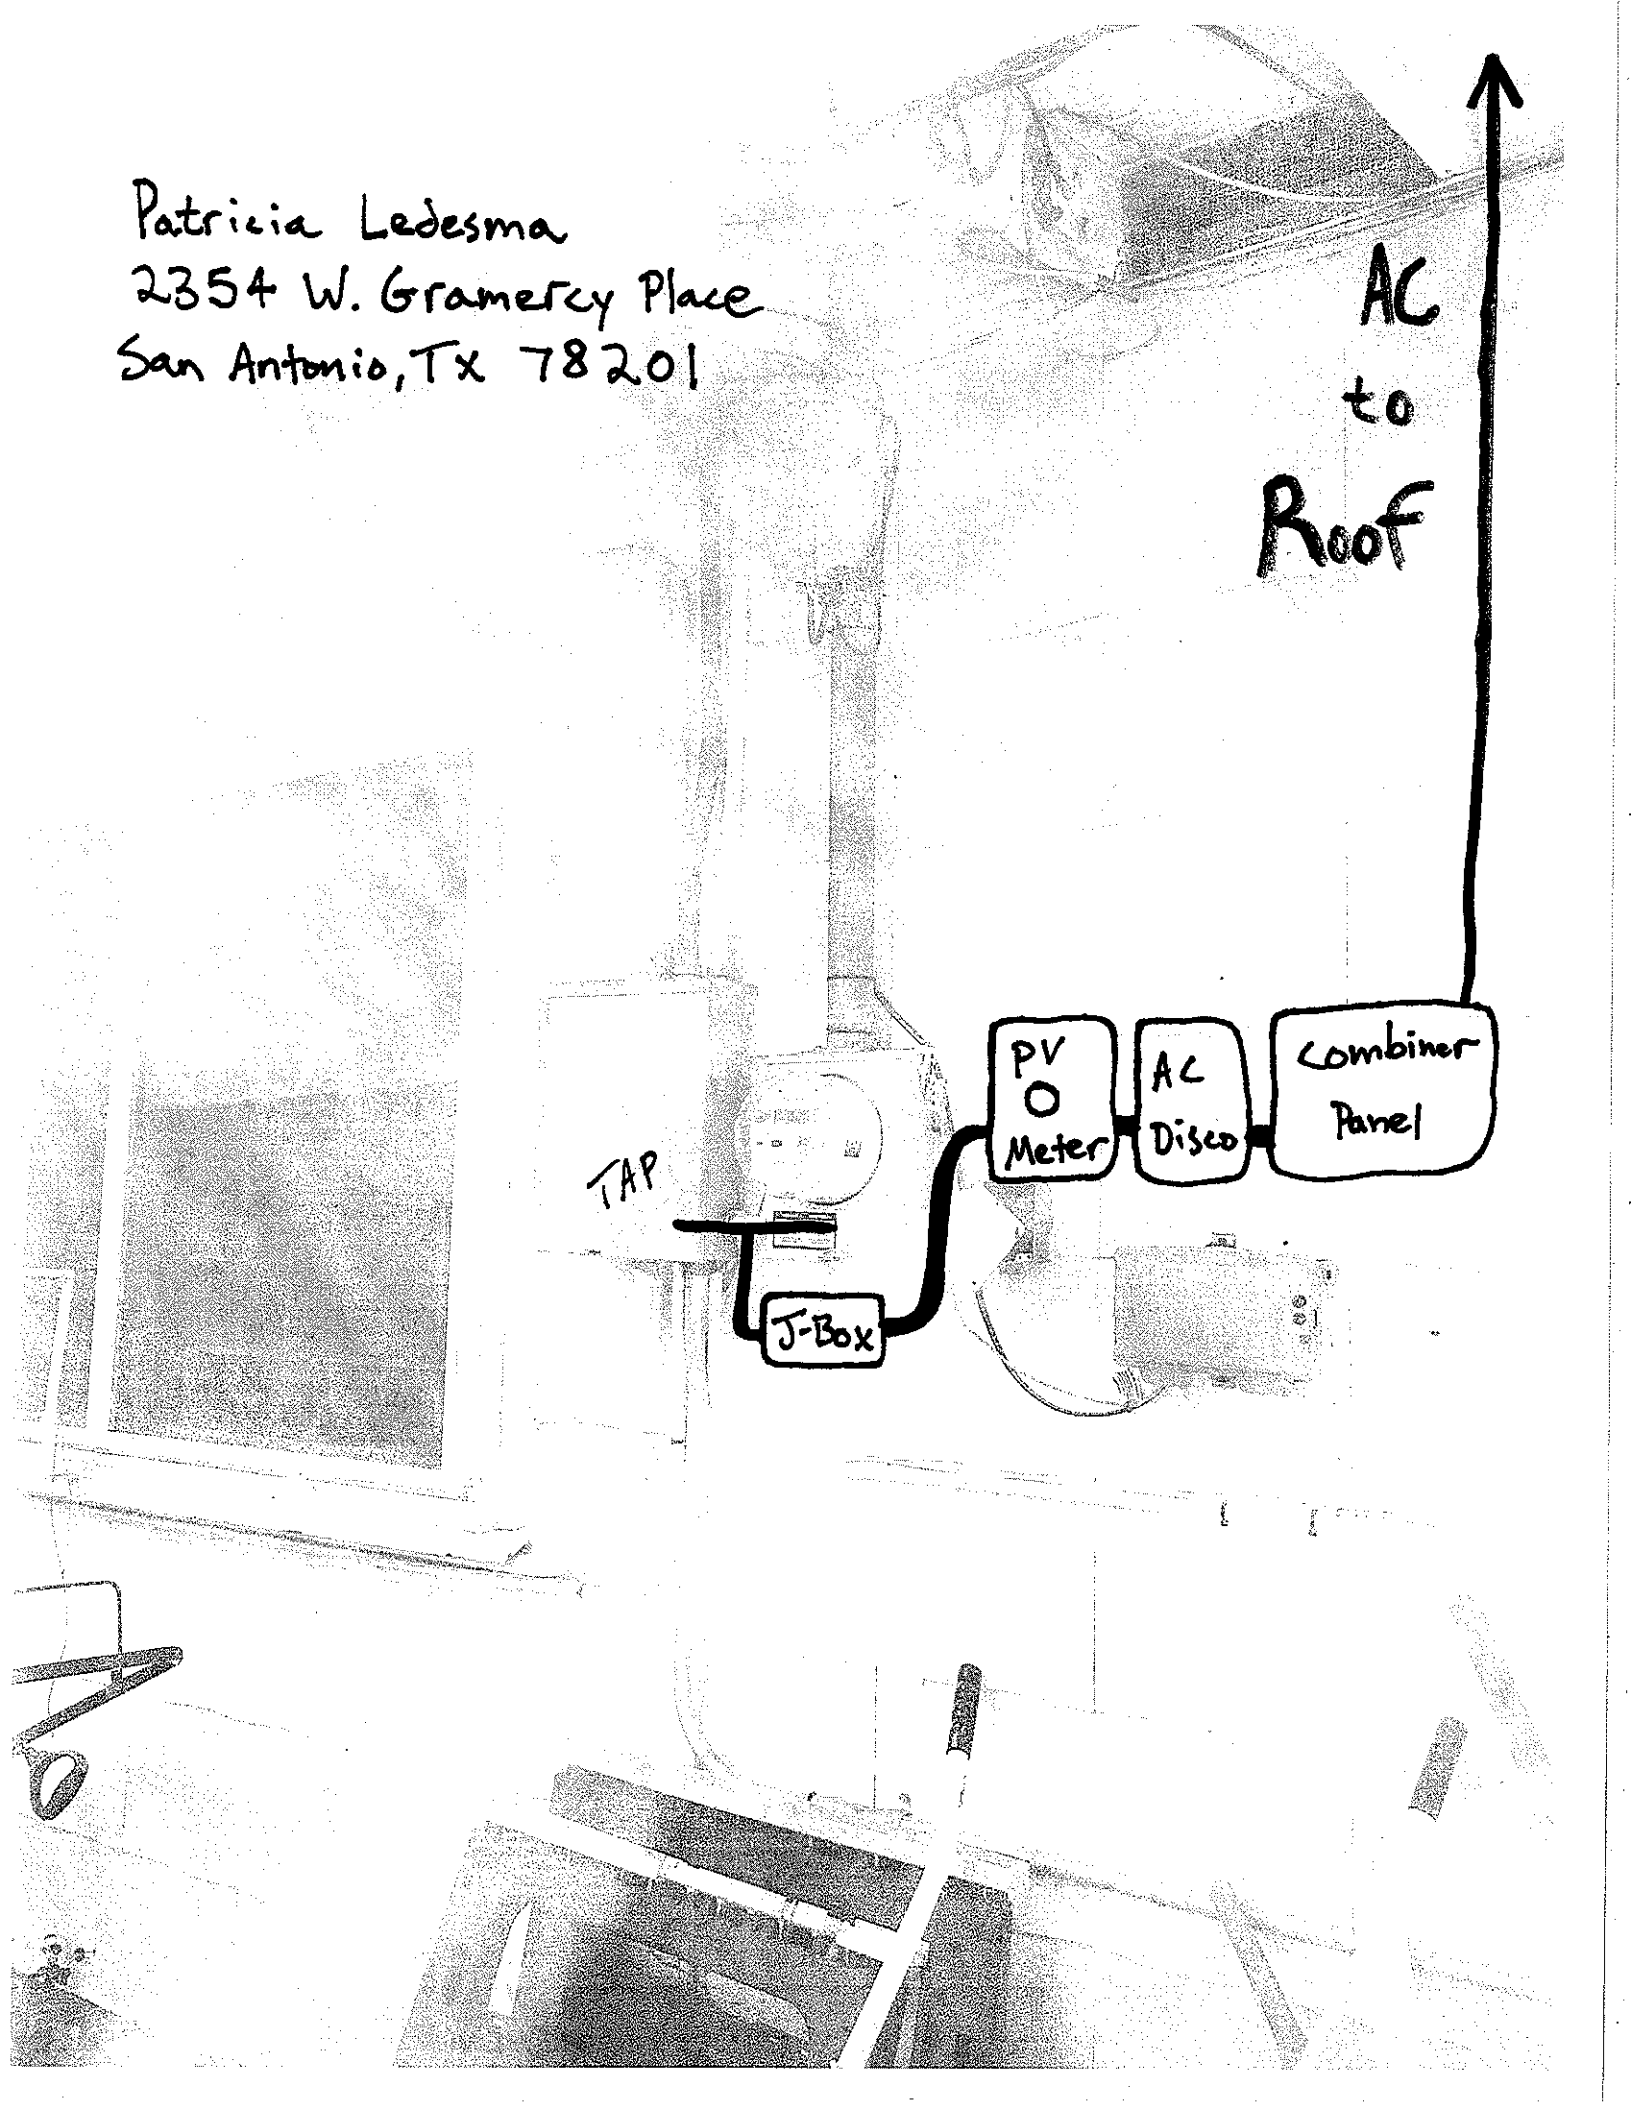 Patricia Ledesma
2354 W. Gramercy Place
San Antonio, Tx 78201
AC
to
Roof
PV
Meter
AC
Disco
Combiner
Panel
TAP
J-Box